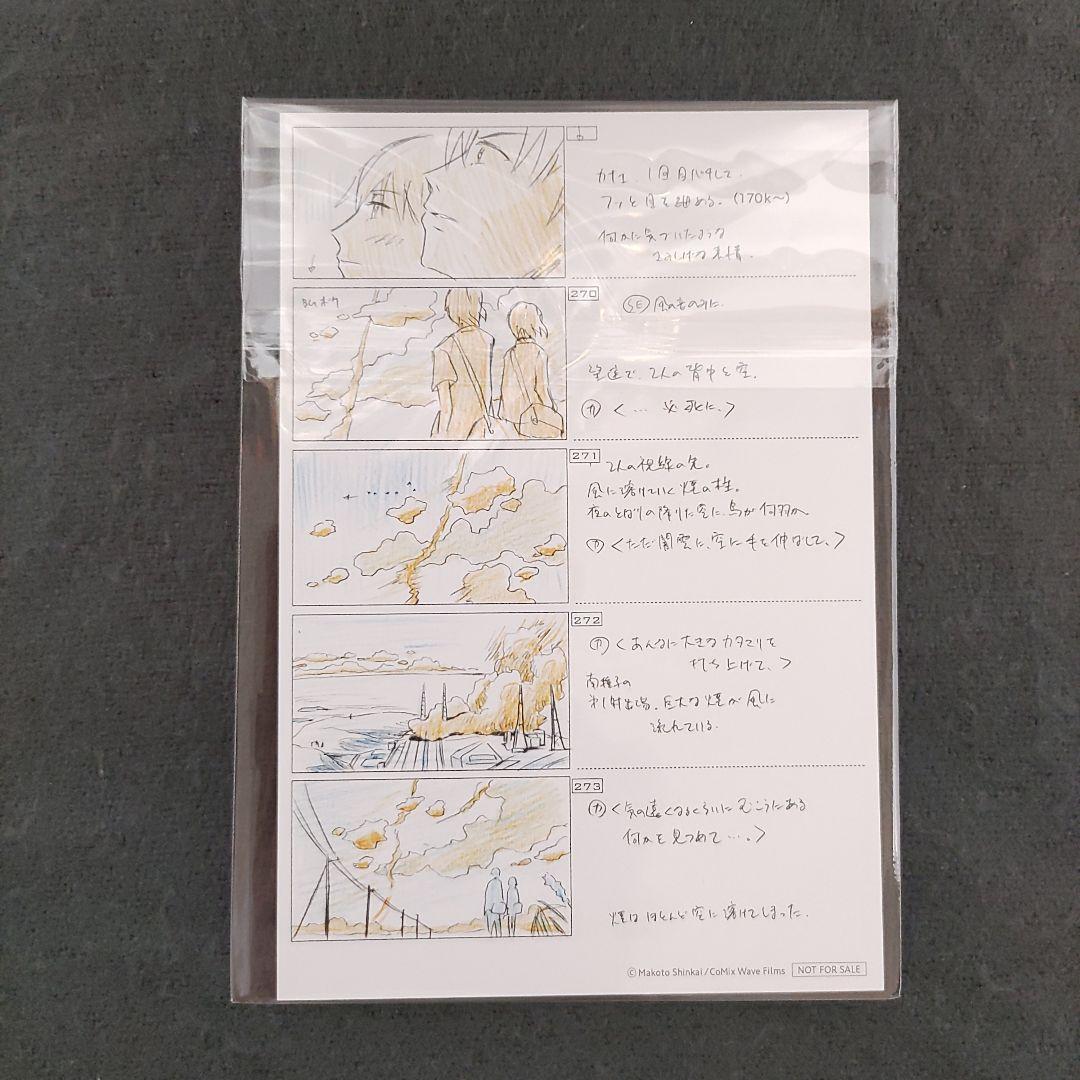 カナエ、1回目パチして、
フッと目を細める。(170k〜)
何かに気づいたような
BGオーク
270
SE 風の音のみに。
望遠で、2人の背中と空。
カ <… 必死に、>
271
2人の視線の先。
風に溶けていく煙の柱。
夜のとばりの降りた空に、鳥が何羽か
カ <ただ闇雲に、空に手を伸ばして、>
272
カ <あんなに大きなカタマリを
打ち上げて、>
南種子の
射出場。巨大な煙が風に
流れている。
273
カ <気の遠くなるくらいにむこうにある
何かを見つめて…。>
煙はほとんど空に溶けてしまった。
© Makoto Shinkai / CoMix Wave Films
NOT FOR SALE